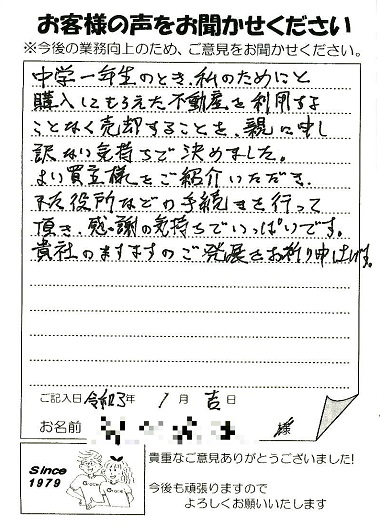 お客様の声をお聞かせください
※今後の業務向上のため、ご意見をお聞かせください。
中学一年生のとき、私のためにと
購入してもらえた不動産を利用するよ
ことなく売却することを、親に申し
訳ない気持ちで決めました。
よい買主様をご紹介いただき、
又役所などの手続きを行って
頂き、感謝の気持ちでいっぱいです。
貴社のますますのご発展をお祈り申し上げます。
ご記入日 令和3年 1月 吉日
お名前 様
Since
1979
貴重なご意見ありがとうございました!
今後も頑張りますので
よろしくお願いいたします